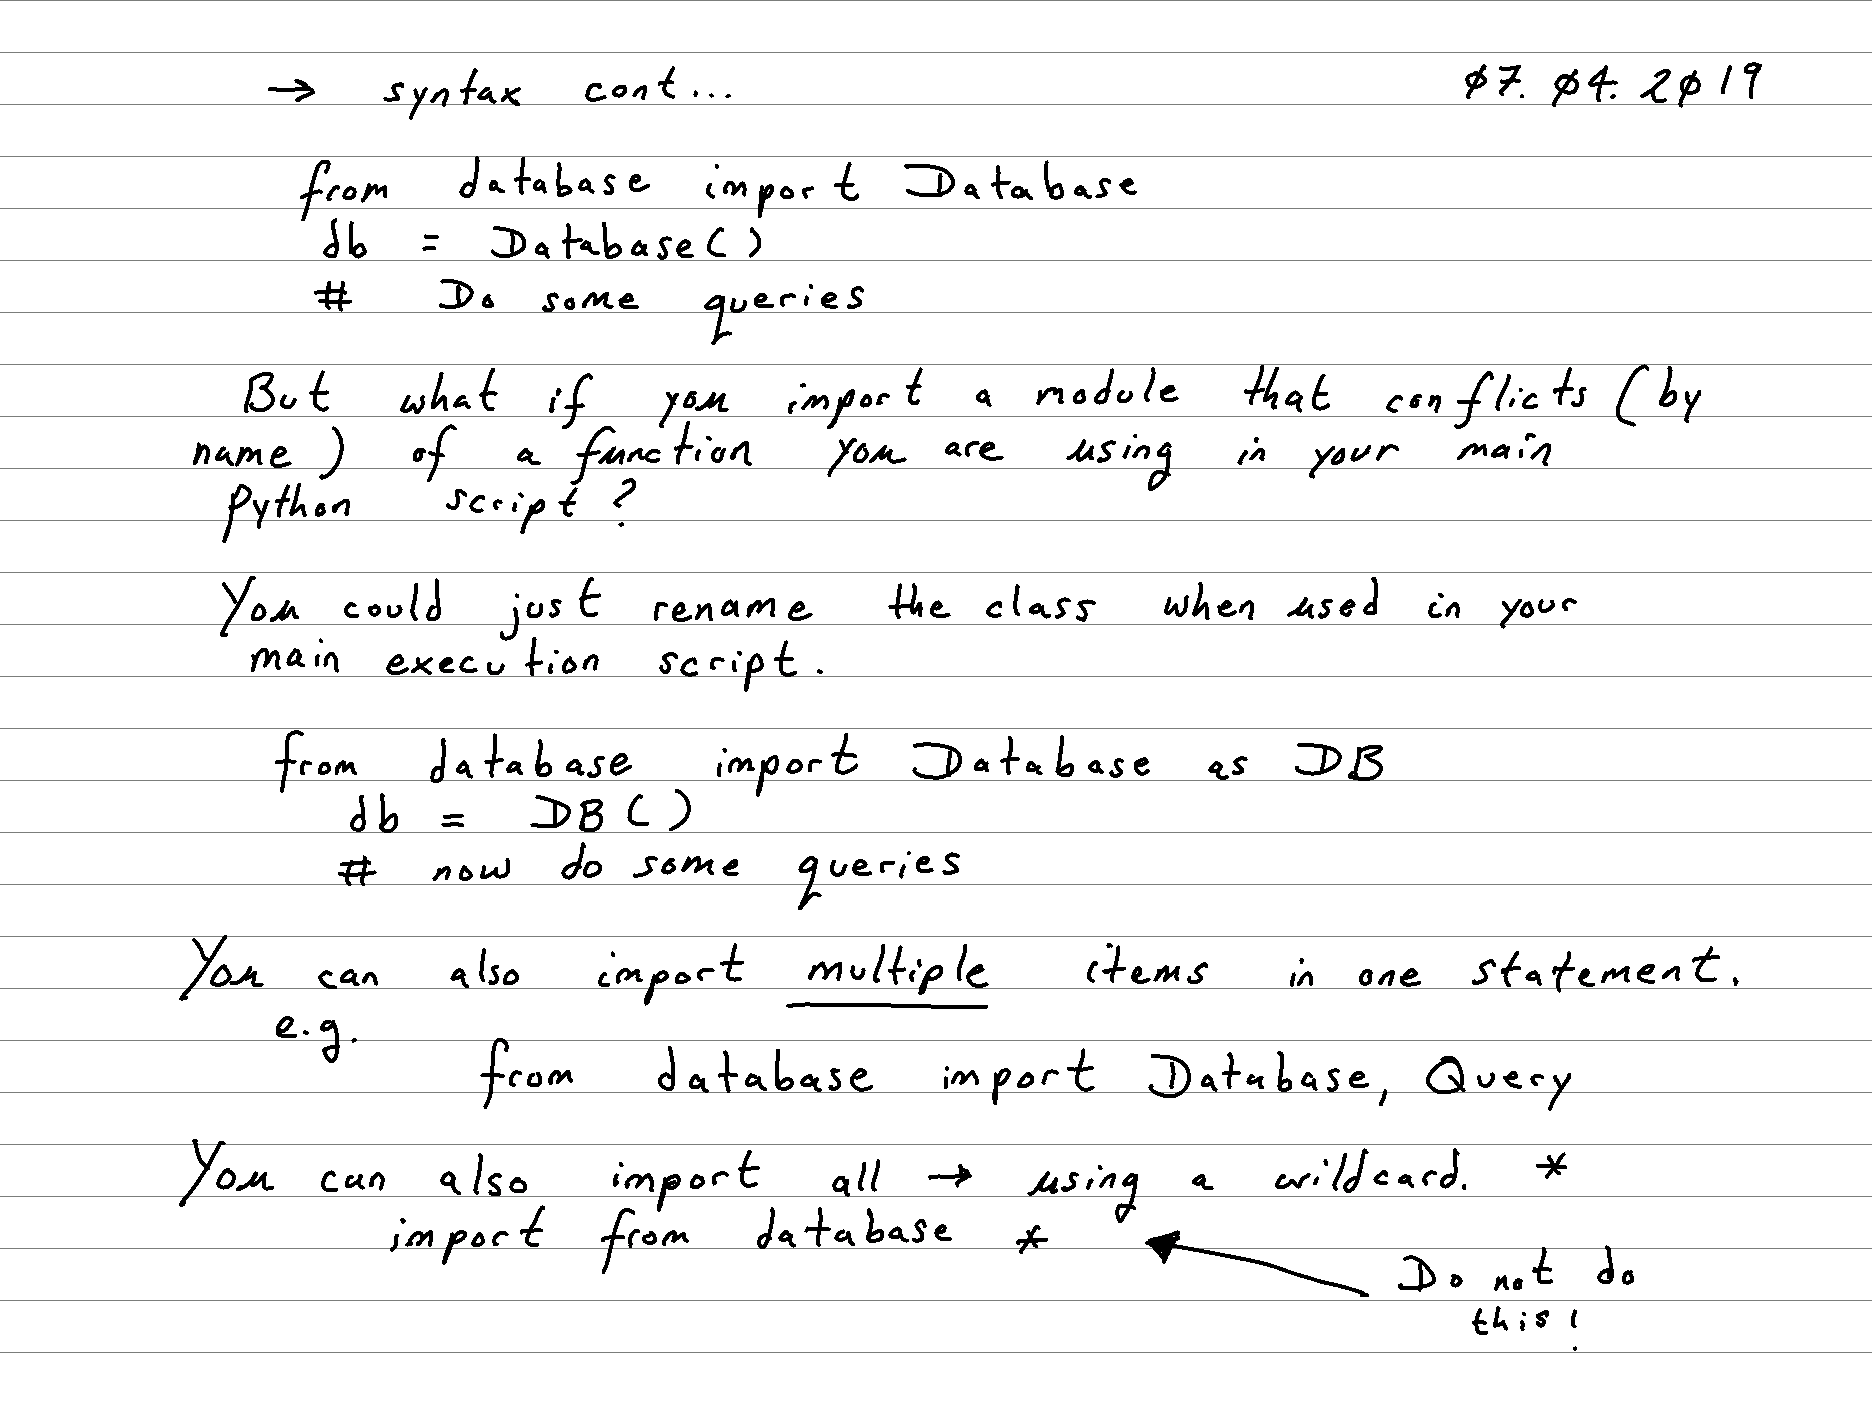 → syntax cont... 07.04.2019
from database import Database
db = Database()
# Do some queries
But what if you import a module that conflicts (by
name) of a function you are using in your main
Python script?
You could just rename the class when used in your
main execution script.
from database import Database as DB
db = DB()
# now do some queries
You can also import multiple items in one statement.
e.g.
from database import Database, Query
You can also import all → using a wildcard. *
import from database *
Do not do
this!